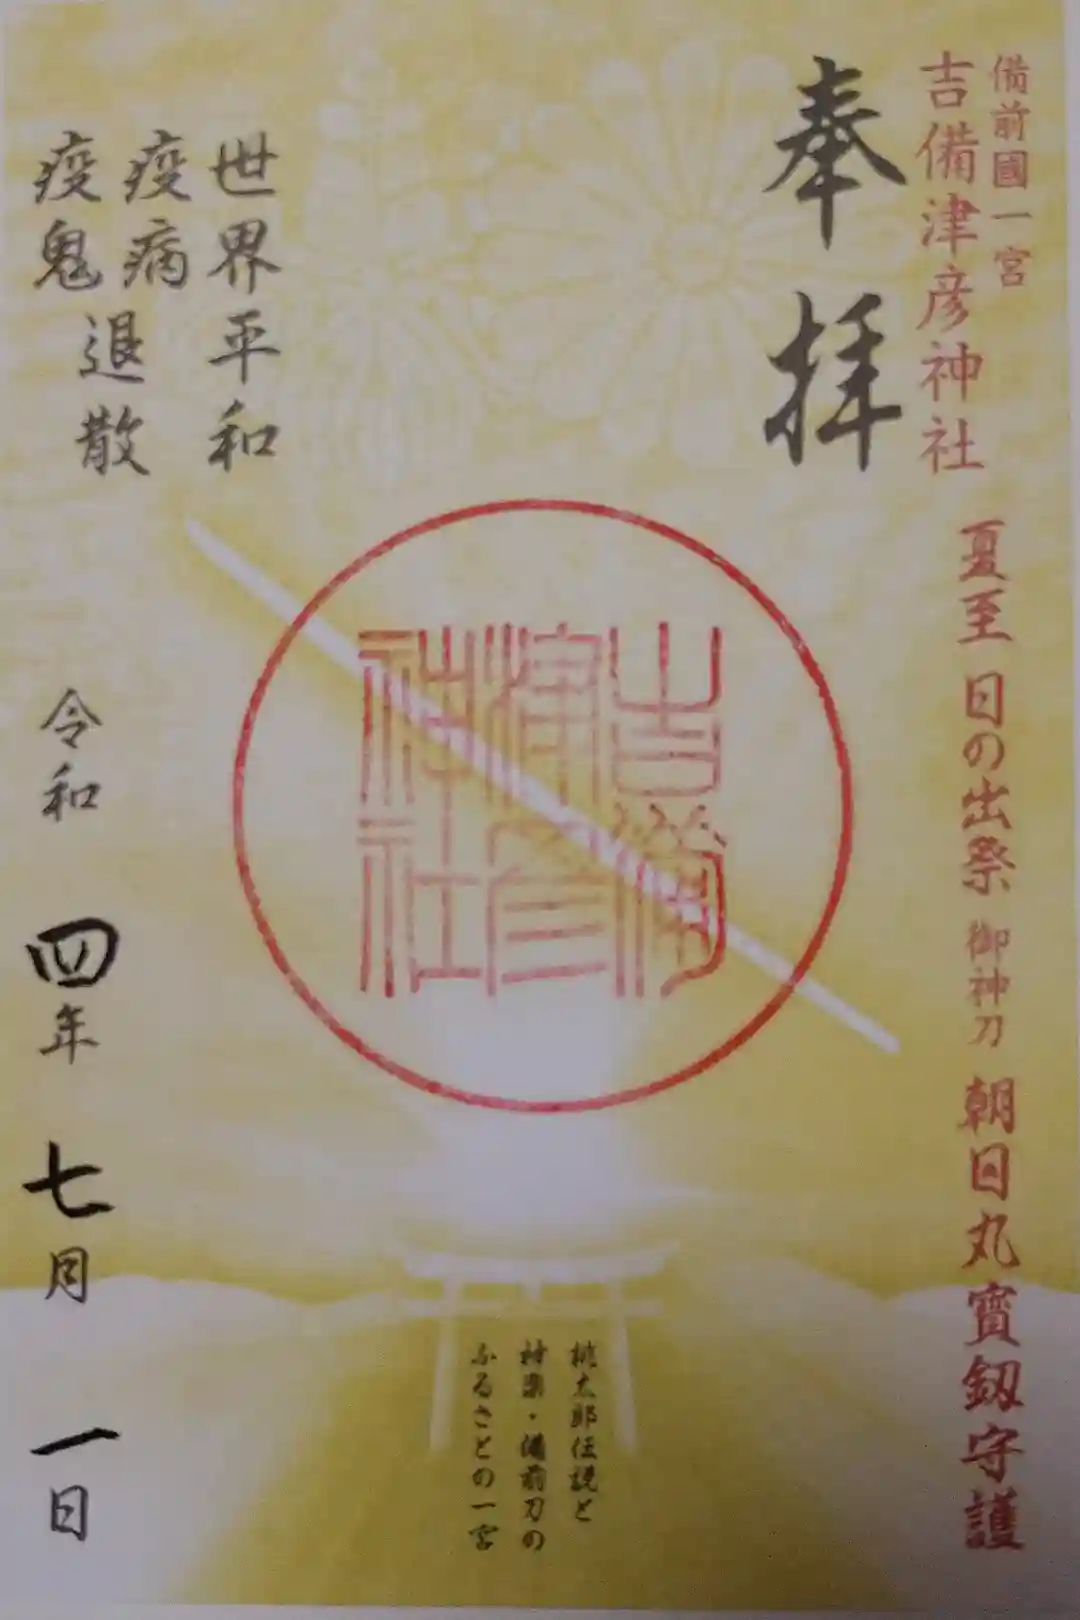 備前國一宮
吉備津彦神社
夏至 日の出祭 御神刀 朝日丸寳釼守護
奉拝
吉備
津彦
神社
桃太郎伝説と
神楽・備前刀の
ふるさとの一宮
世界平和
疫病
疫鬼
退散
令和四年七月一日